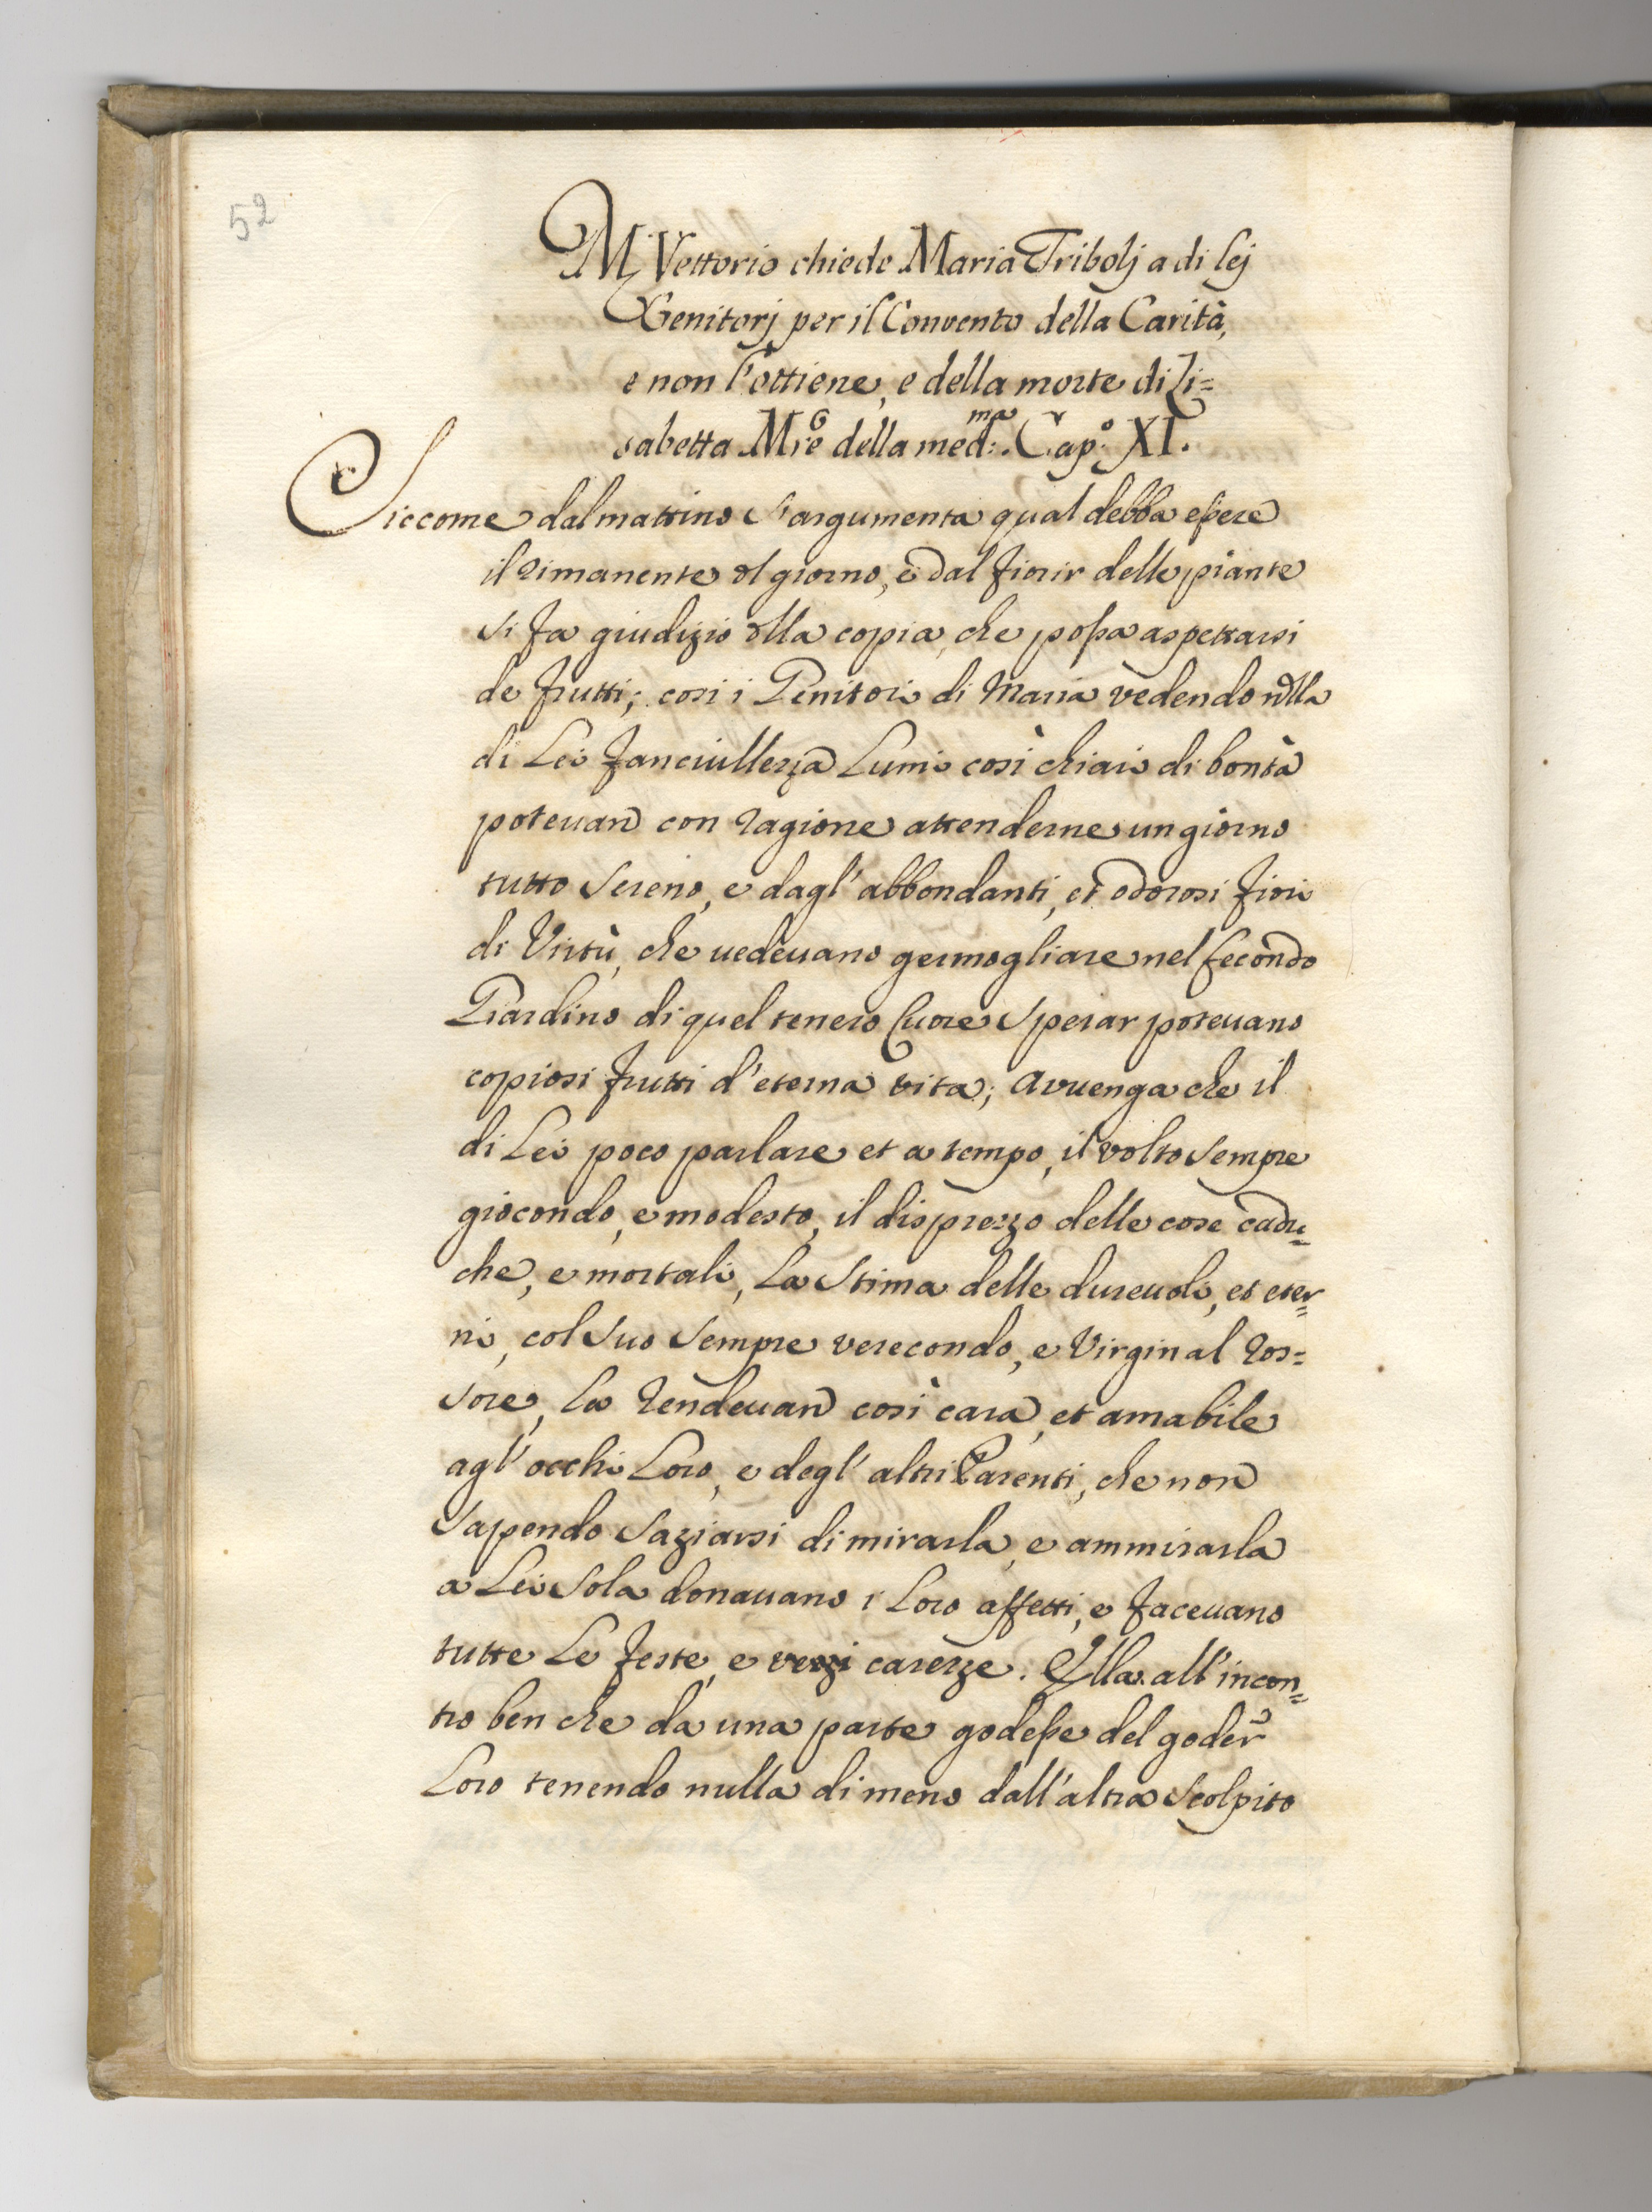 52
M. Vettorio chiede Maria Tribolj a di lej
Genitorj per il Convento della Carità,
e non l'ottiene, e della morte di Li=
sabetta M.re della med.ma Cap.o XI.
Siccome dal mattino s'argumenta qual debba essere
il rimanente dl giorno, e dal fiorir delle piante
si fa giudizio dlla copia, che possa aspettarsi
de frutti; cosi i Genitori di Maria vedendo nlla
di Lei fanciullezza Lumi così chiari di bontà
potevan con ragione attenderne un giorno
tutto sereno, e dagl'abbondanti, et odorosi fiori
di Virtù, che uedeuano germogliare nel fecondo
Giardino di quel tenero Cuore sperar poteuano
copiosi frutti d'eterna vita; avuenga che il
di Lei poco parlare et a tempo, il volto sempre
giocondo, e modesto, il disprezzo delle cose cadu=
che, e mortali, La stima delle dureuoli, et eter=
ni, col suo sempre verecondo, e Virginal ros=
sore, la rendeuan così cara, et amabile
agl'occhi Loro, e degl'altri Parenti, che non
sapendo saziarsi di mirarla, e ammirarla
a Lei sola donauano i Loro affetti, e faceuano
tutte Le feste, e vezzi carezze. Ella all'incon=
tro ben che da una parte godesse del goder
Loro tenendo nulla di meno dall'altra scolpito